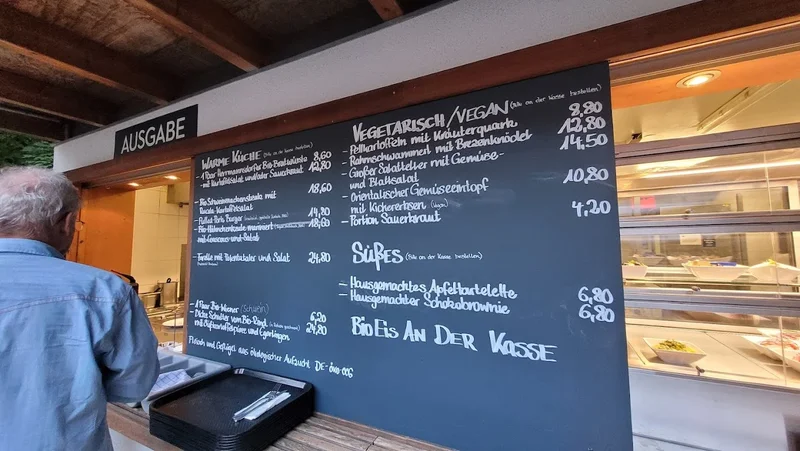 AUSGABE
WARME KÜCHE (Bitte an der Kasse bestellen)
- 1 Paar Herrmannsdorfer Bio Bratwürste 8,60
- mit Kartoffelsalat und/oder Sauerkraut 12,80
- Bio Schweinenackensteak mit 18,60
Rucola Kartoffelsalat
- Pulled Pork Burger 14,80
- Bio Hähnchenkeule mariniert 18,60
mit Couscous und Salat
- Forelle mit Petersilie und Salat 24,80
- 1 Paar Bio Wiener (Schwein) 6,20
- Dicke Schulter vom Bio Rind 24,80
mit Süßkartoffelpüree und Egerlingen
Fleisch und Geflügel aus ökologischer Aufzucht DE-öko-006
VEGETARISCH/VEGAN (Bitte an der Kasse bestellen)
- Pellkartoffeln mit Kräuterquark 8,80
- Rahmschwammerl mit Brezenknödel 12,80
- Großer Salatteller mit Gemüse- 14,50
und Blattsalat
- Orientalischer Gemüseeintopf 10,80
mit Kichererbsen (Vegan)
- Portion Sauerkraut 4,20
SÜßES (Bitte an der Kasse bestellen)
- Hausgemachtes Apfeltartelette 6,80
- Hausgemachter Schokobrownie 6,80
BIO EIS AN DER KASSE